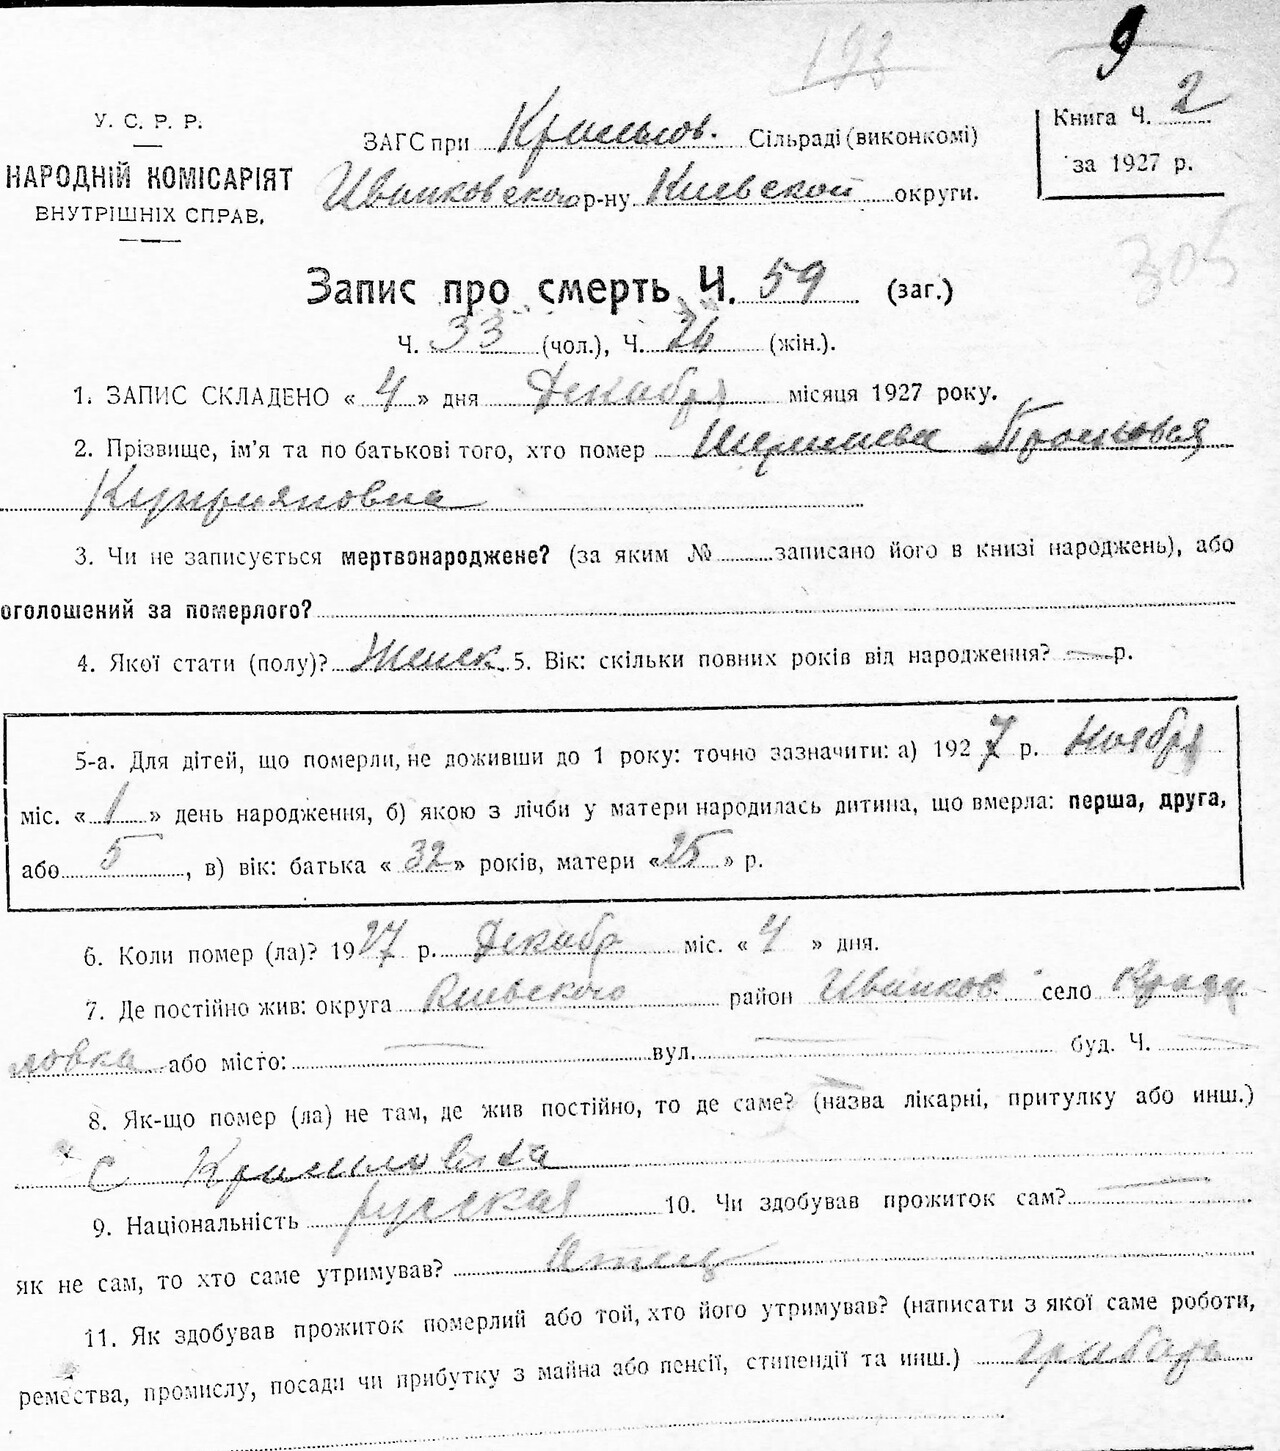 9
193
У. С. Р. Р.
НАРОДНІЙ КОМІСАРІЯТ
ВНУТРІШНІХ СПРАВ.
ЗАГС при Сільраді (виконкомі)
Иванковского р-ну Киевской округи.
Книга Ч. 2
за 1927 р.
305
Запис про смерть Ч. 59 (заг.)
Ч. 33 (чол.), Ч. 26 (жін.).
1. ЗАПИС СКЛАДЕНО « 4 » дня Декабря місяця 1927 року.
2. Прізвище, ім'я та по батькові того, хто помер Прасковья
Куприяновна
3. Чи не записується мертвонароджене? (за яким № записано його в книзі народжень), або
оголошений за померлого?
4. Якої стати (полу)? Женск 5. Вік: скільки повних років від народження? — р.
5-а. Для дітей, що померли, не доживши до 1 року: точно зазначити: а) 1927 р. Ноября
міс. « 1 » день народження, б) якою з лічби у матери народилась дитина, що вмерла: перша, друга,
або 5, в) вік: батька « 32 » років, матери « 25 » р.
6. Коли помер (ла)? 1927 р. Декабр міс. « 4 » дня.
7. Де постійно жив: округа Киевского район Иванков. село
ловка або місто: — вул. — буд. Ч. —
8. Як-що помер (ла) не там, де жив постійно, то де саме? (назва лікарні, притулку або инш.)
с
9. Національність русская 10. Чи здобував прожиток сам? —
як не сам, то хто саме утримував? Отец
11. Як здобував прожиток померлий або той, хто його утримував? (написати з якої саме роботи,
ремества, промислу, посади чи прибутку з майна або пенсії, стипендії та инш.) грабарь